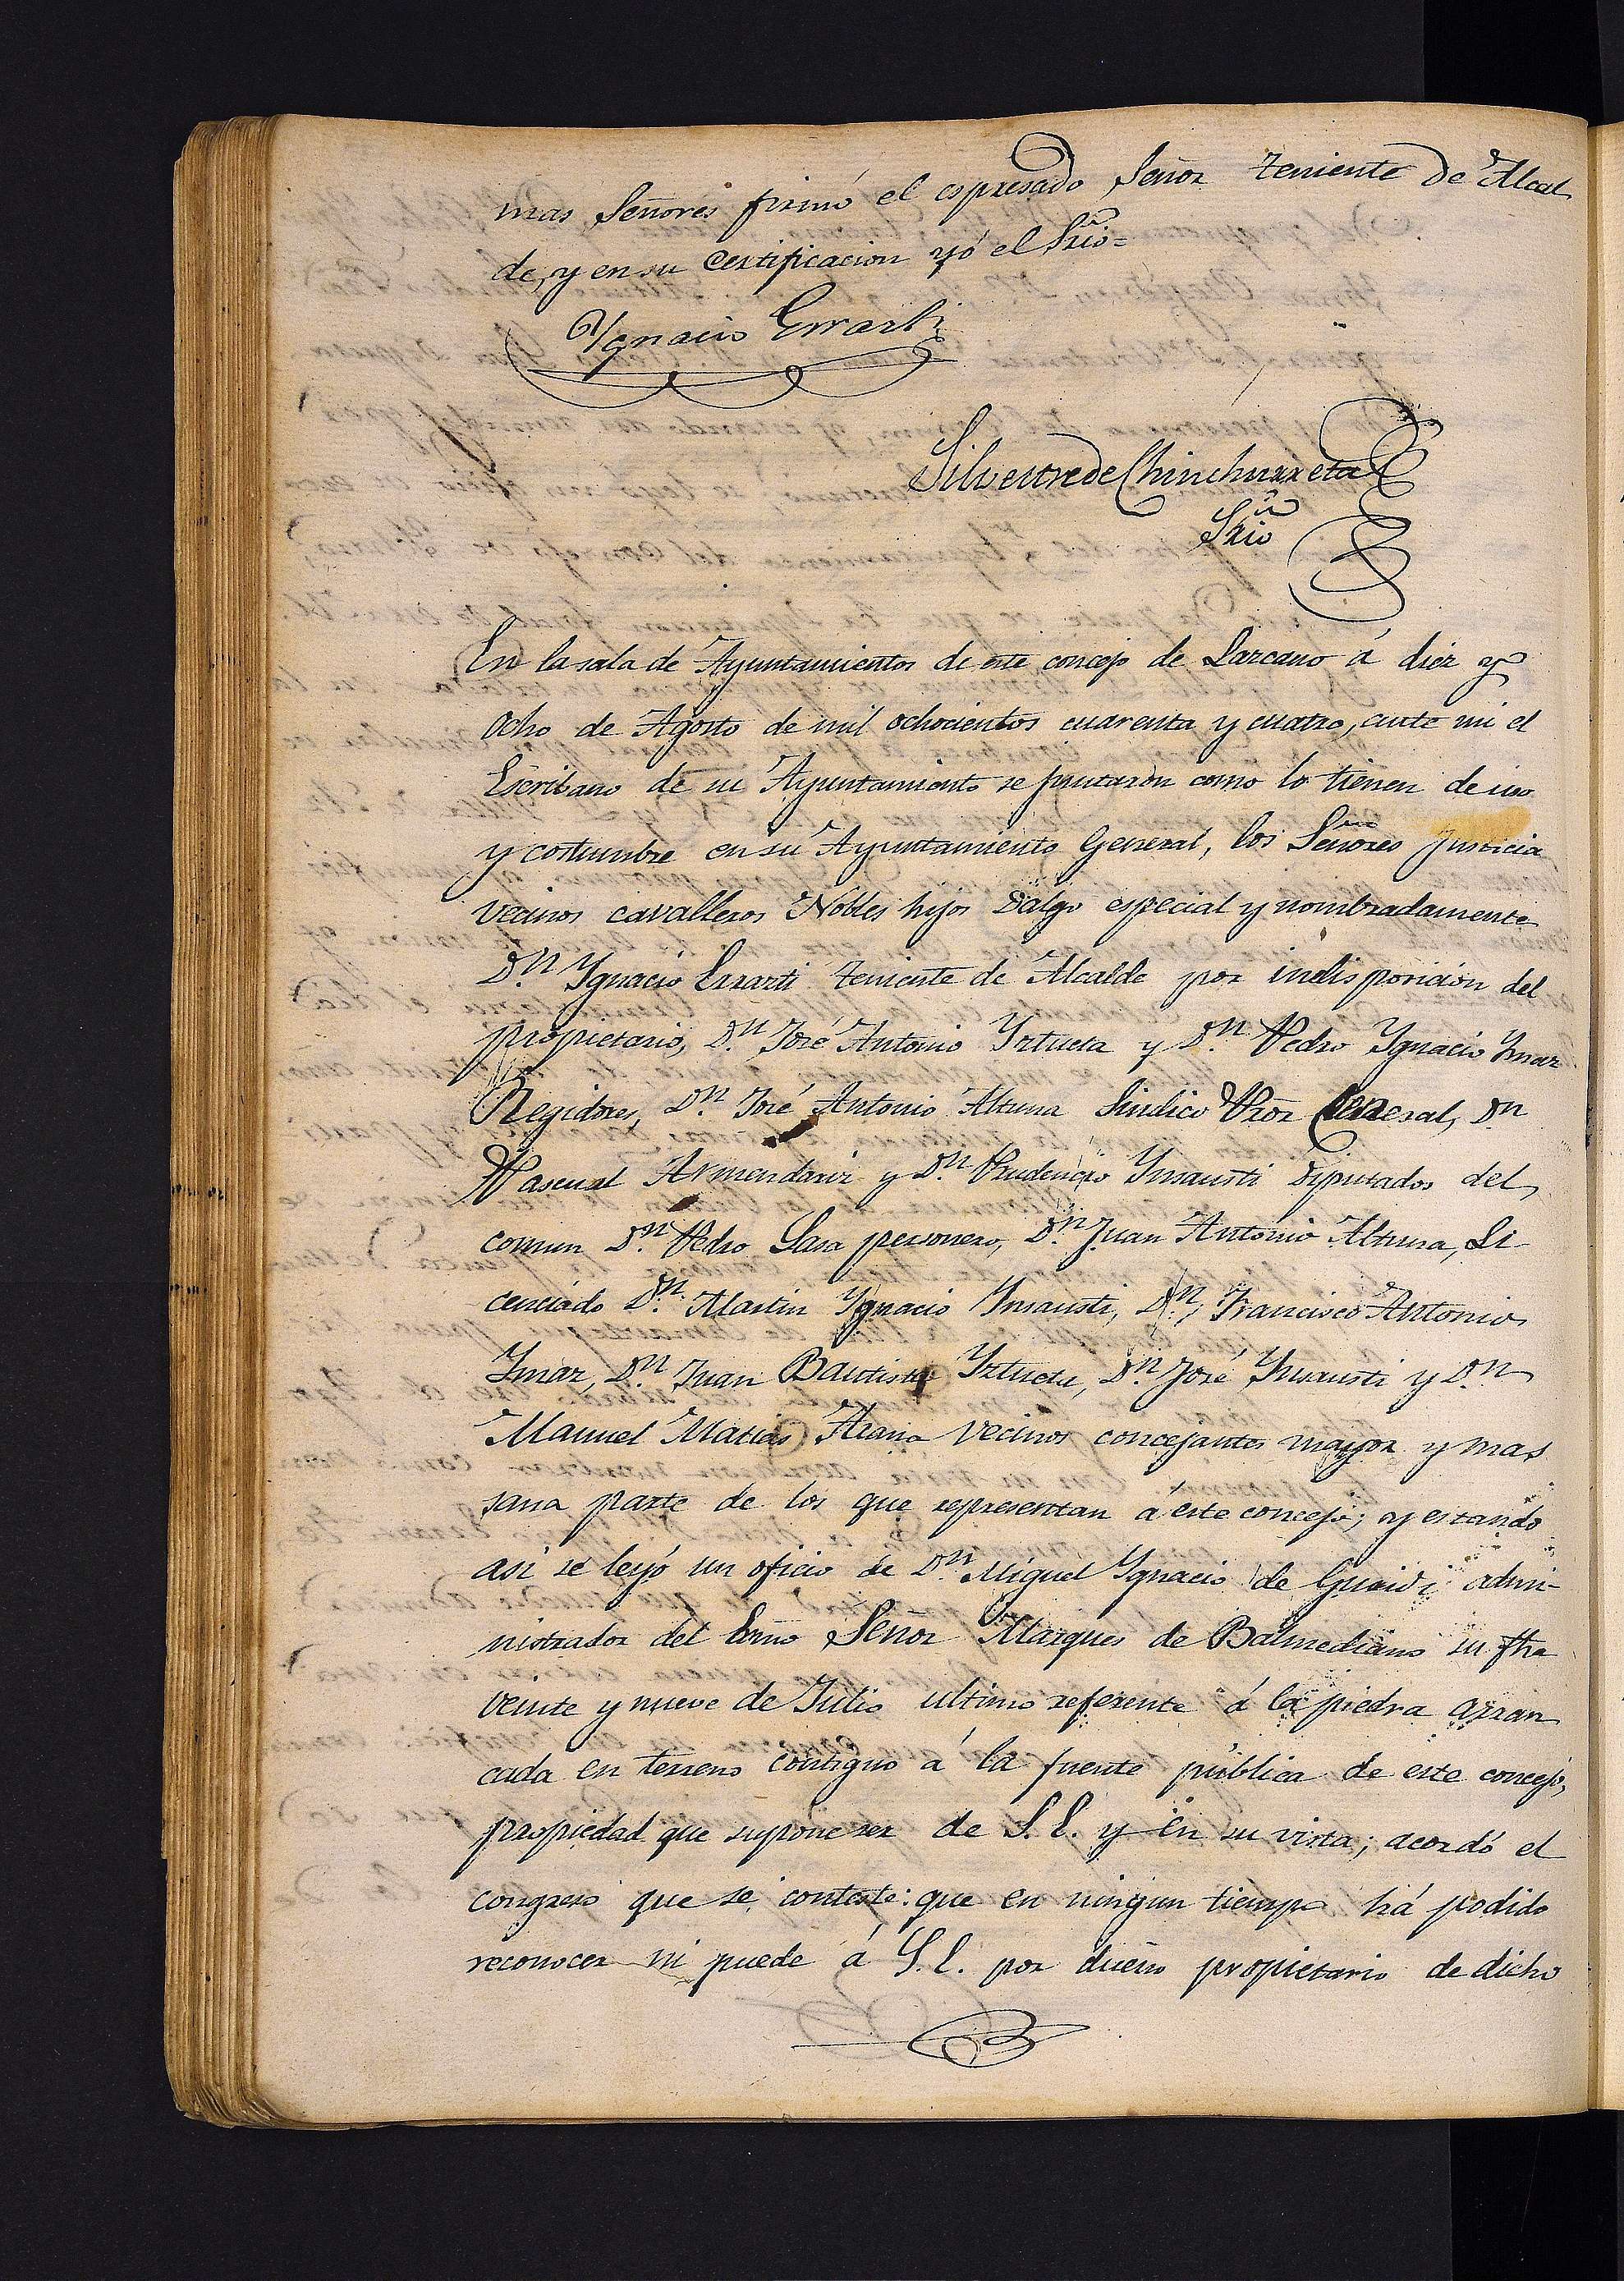 mas Señores firmó el espresado Señor teniente de Alcal
de, y en su certificacion yó el Srio=
Ygnacio Errarti
Silvestre de Chinchurreta
Srio
En la sala de Ayuntamientos de este concejo de Lazcano á diez y
ocho de Agosto de mil ochocientos cuarenta y cuatro, ante mi el
Escribano de su Ayuntamiento se juntaron como lo tienen de uso
y costumbre en su Ayuntamiento General, los Señores Justicia
vecinos cavalleros Nobles hijos dalgo especial y nombradamente
Dn. Ygnacio Errarti teniente de Alcalde por indisposicion del
propietario, Dn. José Antonio Yztueta y Dn. Pedro Ygnacio Ymaz
Regidores, Dn. José Antonio Altuna Sindico Pror General, Dn
Pascual Armendariz y Dn. Prudencio Ynsausti diputados del
comun Dn. Pedro Lasa personero, Dn. Juan Antonio Altuna, Li
cenciado Dn. Martin Ygnacio Ynsausti, Dn. Francisco Antonio
Ymaz, Dn. Juan Bautista Yztueta, Dn. José Ynsausti y Dn.
Manuel Matias Arana vecinos concejantes mayor y mas
sana parte de los que representan á este concejo; y estando
asi se leyó un oficio de Dn. Miguel Ygnacio de Guridi admi-
nistrador del Exmo Señor Marques de Balmediano su fha
veinte y nueve de Julio ultimo referente á la piedra arran
cada en terreno contiguo á la fuente pública de este concejo,
propiedad que supone ser de S. E. y en su vista; acordó el
congreso que se conteste: que en ningun tiempo há podido
reconocer ni puede á S. E. por dueño propietario de dicho